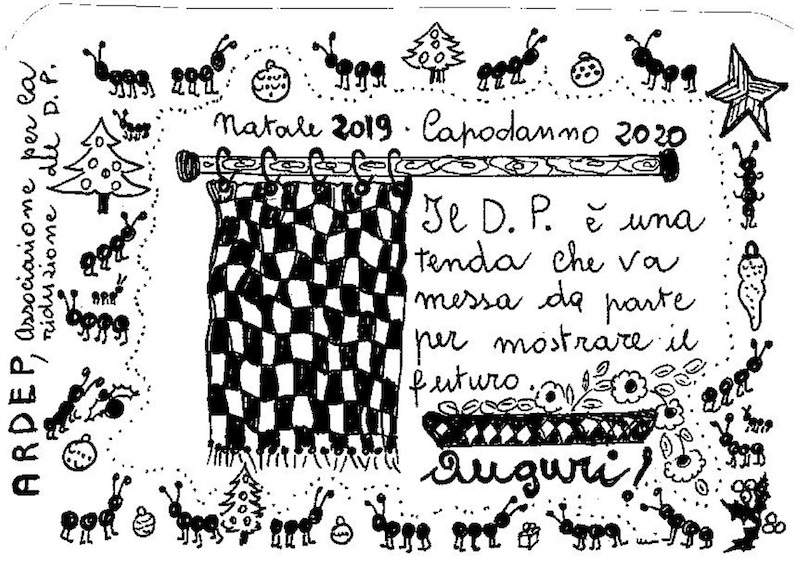 Natale 2019 · Capodanno 2020
Il D. P. è una
tenda che va
messa da parte
per mostrare il
futuro.
Auguri!
ARDEP, Associazione per la
riduzione del D. P.